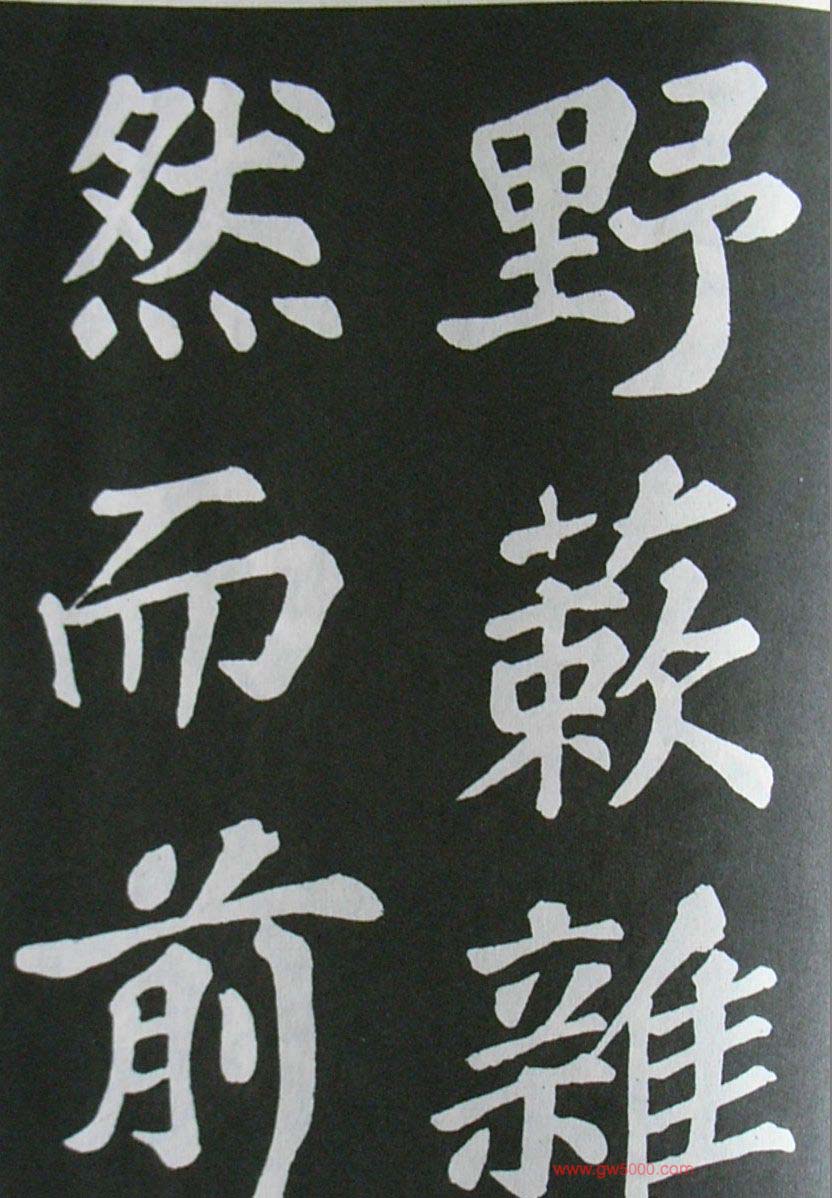 野蔌雜
然而前
www.gw5000.com